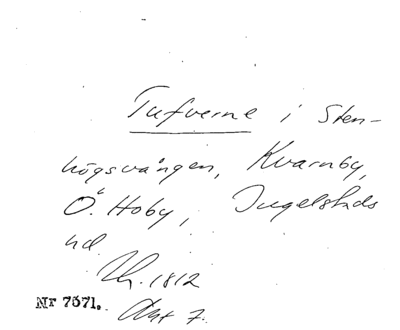 Tufverne i Sten-
högsvången, Kvarnby,
Ö. Hoby, Ingelstads
hd
Uh. 1812
Akt 7.
Nr 7571.